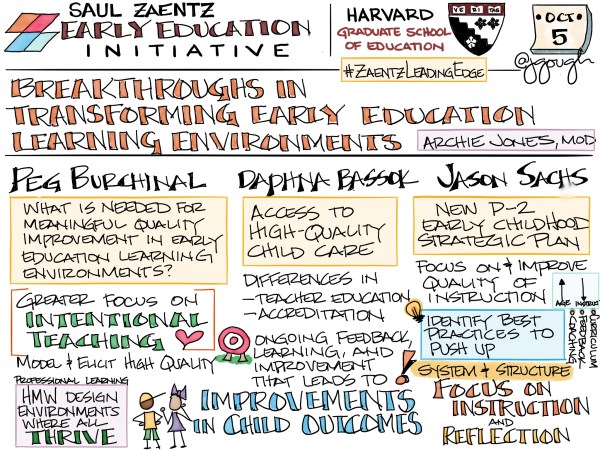 SAUL ZAENTZ
EARLY EDUCATION
INITIATIVE
HARVARD
GRADUATE SCHOOL
OF EDUCATION
OCT
5
#ZAENTZLEADINGEDGE
@jgough
BREAKTHROUGHS IN
TRANSFORMING EARLY EDUCATION
LEARNING ENVIRONMENTS
ARCHIE JONES, MOD
PEG BURCHINAL
WHAT IS NEEDED FOR
MEANINGFUL QUALITY
IMPROVEMENT IN EARLY
EDUCATION LEARNING
ENVIRONMENTS?
GREATER FOCUS ON
INTENTIONAL
TEACHING
MODEL & ELICIT HIGH QUALITY
PROFESSIONAL LEARNING
HMW DESIGN
ENVIRONMENTS
WHERE ALL
THRIVE
DAPHNA BASSOK
ACCESS TO
HIGH-QUALITY
CHILD CARE
DIFFERENCES IN
- TEACHER EDUCATION
- ACCREDITATION
ONGOING FEEDBACK,
LEARNING, AND
IMPROVEMENT
THAT LEADS TO
IMPROVEMENTS
IN CHILD OUTCOMES
JASON SACHS
NEW P-2
EARLY CHILDHOOD
STRATEGIC PLAN
FOCUS ON & IMPROVE
QUALITY OF
INSTRUCTION
AGE
INSTRUCT
CURRICULUM
FEEDBACK
COACHING
IDENTIFY BEST
PRACTICES TO
PUSH UP
SYSTEM & STRUCTURE
FOCUS ON
INSTRUCTION
AND
REFLECTION